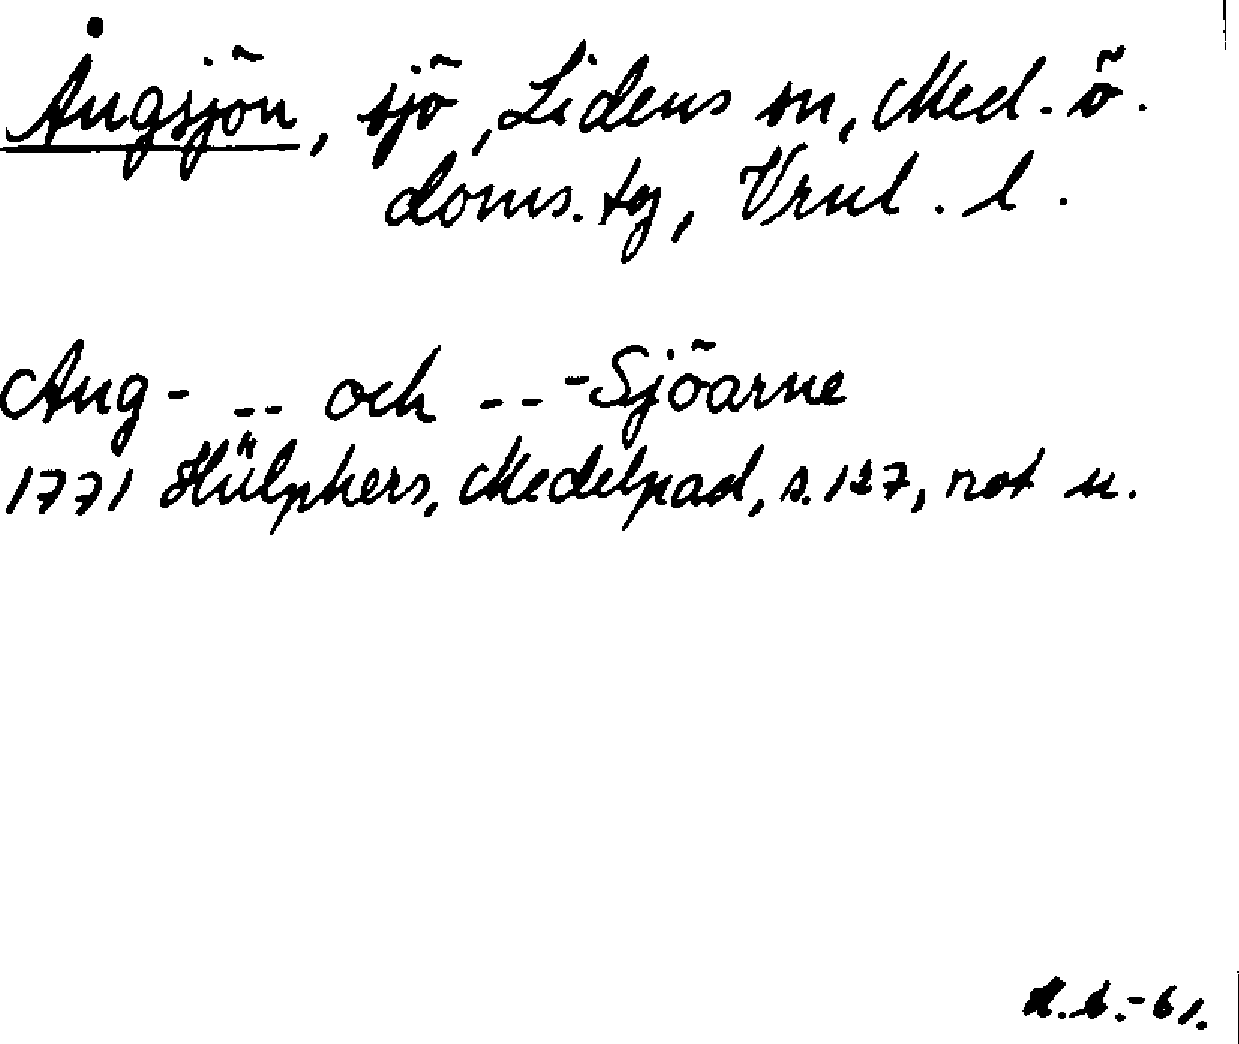 Ångsjön, sjö, Lidens sn, Med. ö.
doms. tg, Vrnl. l.
Aug- -- och -- -Sjöarne
1771 Hülphers, Medelpad, s. 127, not u.